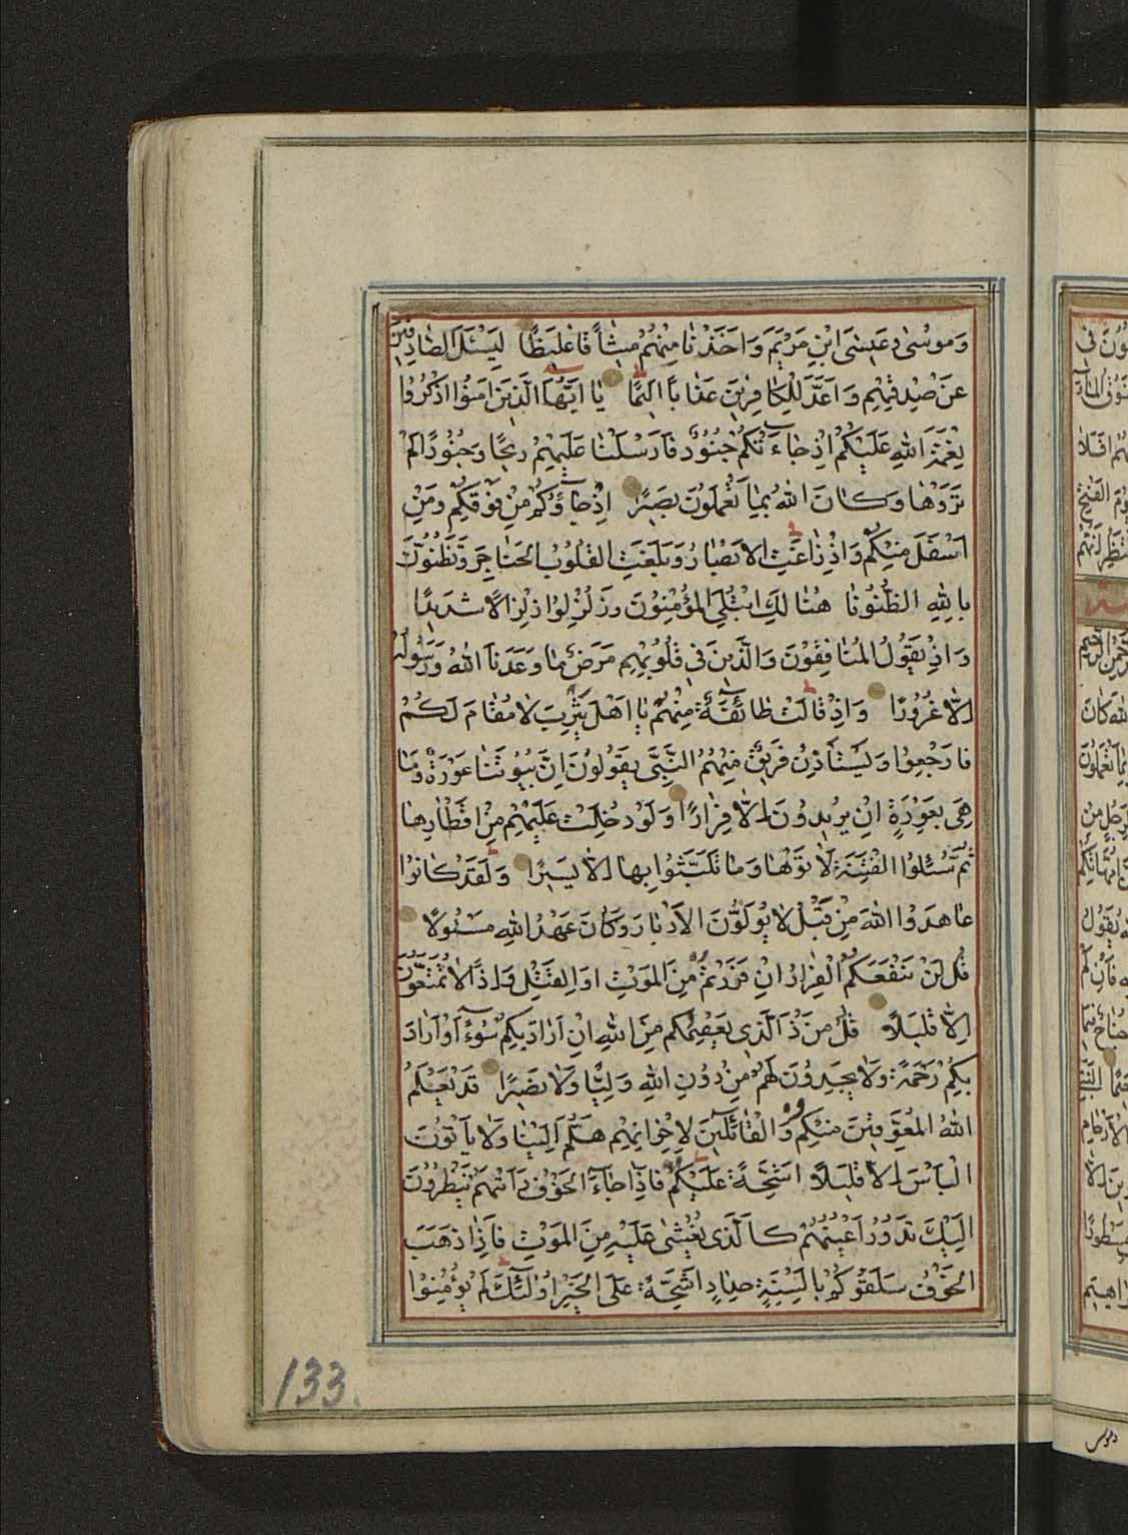 وَمُوسٰى وَعِيسَى ابْنِ مَرْيَمَ وَاَخَذْنٰا مِنْهُمْ مِيثٰاقًا غَلِيظًا لِيَسْئَلَ الصّٰادِقِينَ
عَنْ صِدْقِهِمْ وَاَعَدَّ لِلْكٰافِرِينَ عَذٰابًا اَلِيمًا يٰا اَيُّهَا الَّذِينَ اٰمَنُوا اذْكُرُوا
نِعْمَةَ اللّٰهِ عَلَيْكُمْ اِذْ جٰاءَتْكُمْ جُنُودٌ فَاَرْسَلْنٰا عَلَيْهِمْ رِيحًا وَجُنُودًا لَمْ
تَرَوْهٰا وَكٰانَ اللّٰهُ بِمٰا تَعْمَلُونَ بَصِيرًا اِذْ جٰاؤُكُمْ مِنْ فَوْقِكُمْ وَمِنْ
اَسْفَلَ مِنْكُمْ وَاِذْ زٰاغَتِ الْاَبْصٰارُ وَبَلَغَتِ الْقُلُوبُ الْحَنٰاجِرَ وَتَظُنُّونَ
بِاللّٰهِ الظُّنُونٰا هُنٰالِكَ ابْتُلِيَ الْمُؤْمِنُونَ وَزُلْزِلُوا زِلْزٰالًا شَدِيدًا
وَاِذْ يَقُولُ الْمُنٰافِقُونَ وَالَّذِينَ فِي قُلُوبِهِمْ مَرَضٌ مٰا وَعَدَنَا اللّٰهُ وَرَسُولُهُ
اِلّٰا غُرُورًا وَاِذْ قٰالَتْ طٰائِفَةٌ مِنْهُمْ يٰا اَهْلَ يَثْرِبَ لٰا مُقٰامَ لَكُمْ
فَارْجِعُوا وَيَسْتَأْذِنُ فَرِيقٌ مِنْهُمُ النَّبِيَّ يَقُولُونَ اِنَّ بُيُوتَنٰا عَوْرَةٌ وَمٰا
هِيَ بِعَوْرَةٍ اِنْ يُرِيدُونَ اِلّٰا فِرٰارًا وَلَوْ دُخِلَتْ عَلَيْهِمْ مِنْ اَقْطٰارِهٰا
ثُمَّ سُئِلُوا الْفِتْنَةَ لَاٰتَوْهٰا وَمٰا تَلَبَّثُوا بِهٰا اِلّٰا يَسِيرًا وَلَقَدْ كٰانُوا
عٰاهَدُوا اللّٰهَ مِنْ قَبْلُ لٰا يُوَلُّونَ الْاَدْبٰارَ وَكٰانَ عَهْدُ اللّٰهِ مَسْئُولًا
قُلْ لَنْ يَنْفَعَكُمُ الْفِرٰارُ اِنْ فَرَرْتُمْ مِنَ الْمَوْتِ اَوِ الْقَتْلِ وَاِذًا لٰا تُمَتَّعُونَ
اِلّٰا قَلِيلًا قُلْ مَنْ ذَا الَّذِي يَعْصِمُكُمْ مِنَ اللّٰهِ اِنْ اَرٰادَ بِكُمْ سُوءًا اَوْ اَرٰادَ
بِكُمْ رَحْمَةً وَلٰا يَجِدُونَ لَهُمْ مِنْ دُونِ اللّٰهِ وَلِيًّا وَلٰا نَصِيرًا قَدْ يَعْلَمُ
اللّٰهُ الْمُعَوِّقِينَ مِنْكُمْ وَالْقٰائِلِينَ لِاِخْوٰانِهِمْ هَلُمَّ اِلَيْنٰا وَلٰا يَأْتُونَ
الْبَأْسَ اِلّٰا قَلِيلًا اَشِحَّةً عَلَيْكُمْ فَاِذٰا جٰاءَ الْخَوْفُ رَاَيْتَهُمْ يَنْظُرُونَ
اِلَيْكَ تَدُورُ اَعْيُنُهُمْ كَالَّذِي يُغْشٰى عَلَيْهِ مِنَ الْمَوْتِ فَاِذٰا ذَهَبَ
الْخَوْفُ سَلَقُوكُمْ بِاَلْسِنَةٍ حِدٰادٍ اَشِحَّةً عَلَى الْخَيْرِ اُولٰئِكَ لَمْ يُؤْمِنُوا
133.